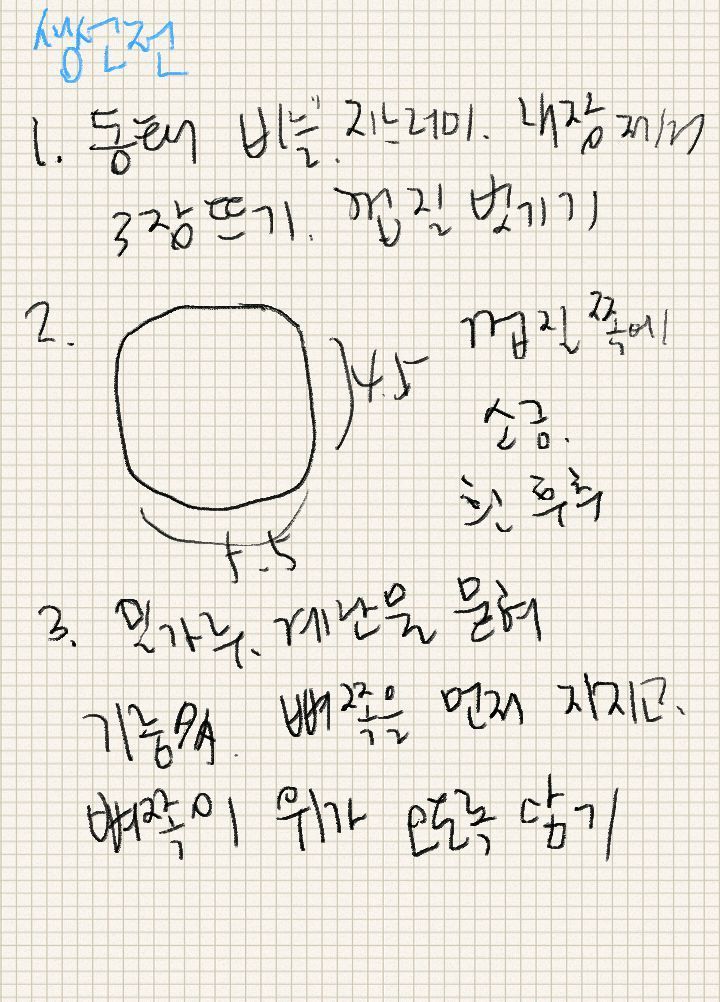 생선전
1. 동태 비늘. 지느러미. 내장 제거
3장 뜨기. 껍질 벗기기
2.
껍질 쪽에
4.5
소금.
흰 후추
5.5
3. 밀가루. 계란을 묻혀
기름 PA. 뼈쪽을 먼저 지지고.
뼈쪽이 위가 오도록 담기